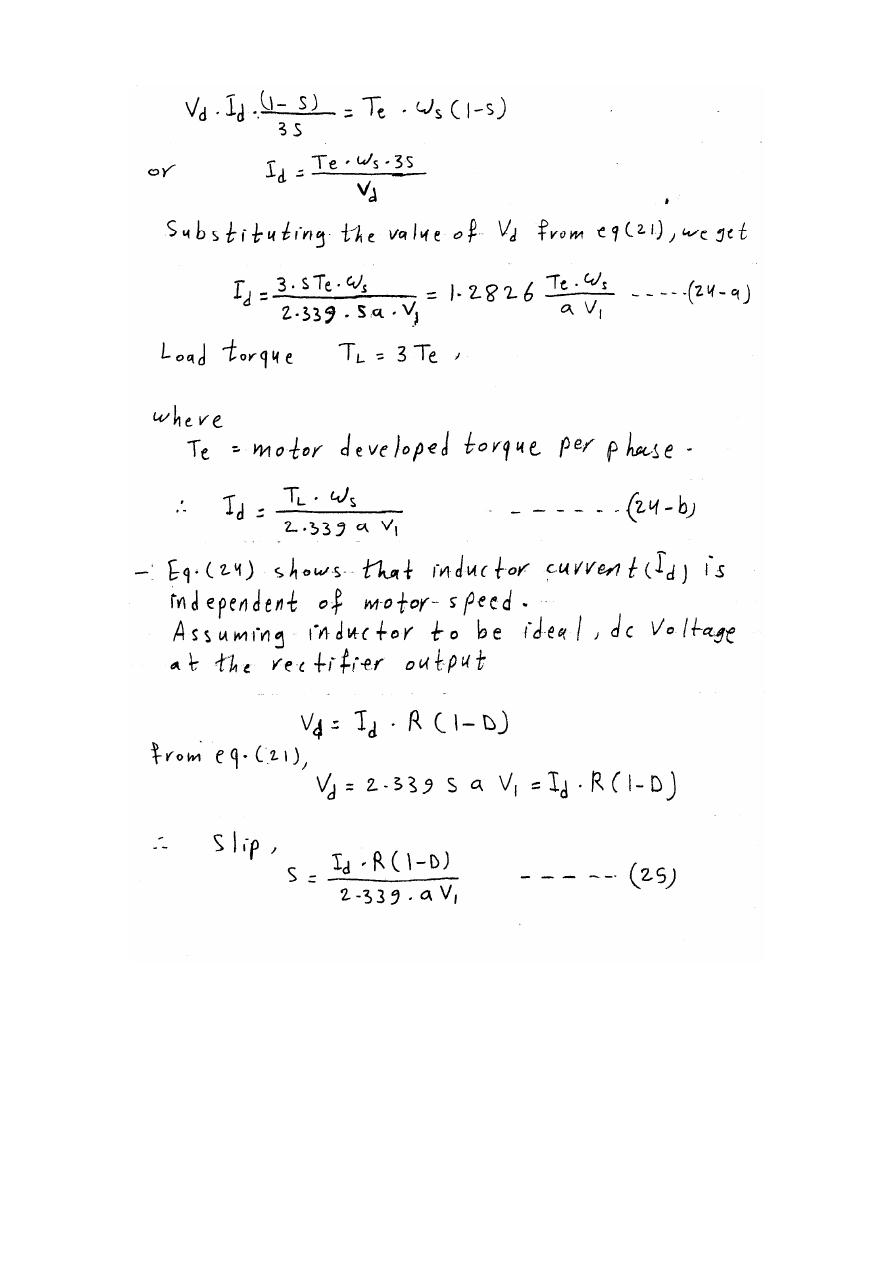 Vd . Id . (1-S)/3S = Te . ωs (1-S)
or Id = Te . ωs . 3S / Vd
Substituting the value of Vd from eq(21), we get
Id = 3.STe.ωs / 2.339 . Sa . V1 = 1.2826 Te.ωs / a V1 -----(24-a)
Load torque TL = 3 Te ,
where
Te = motor developed torque per phase -
∴ Id = TL . ωs / 2.339 a V1 ------(24-b)
- Eq.(24) shows that inductor current (Id) is
independent of motor-speed.
Assuming inductor to be ideal, dc Voltage
at the rectifier output
Vd = Id . R (1-D)
from eq.(21),
Vd = 2.339 S a V1 = Id . R (1-D)
∴ Slip,
S = Id . R (1-D) / 2.339 . a V1 ------ (25)